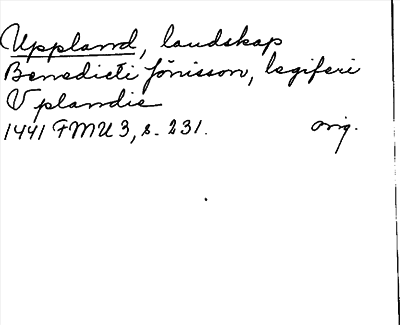 Uppland, landskap
Benedicti Jönisson, legiferi
Vplandie
1441 FMU 3, s. 231. orig.